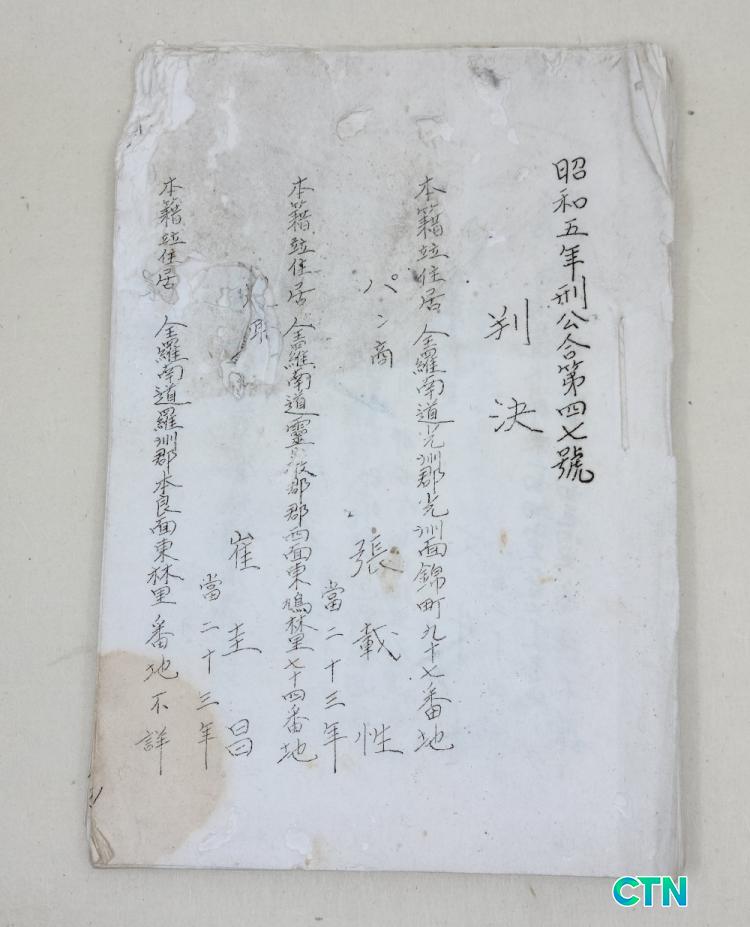 昭和五年刑公合第四七號
判決
本籍竝住居 全羅南道光州郡光州面錦町九十七番地
パン商
張載性
當二十三年
本籍竝住居 全羅南道靈巖郡郡西面東鳩林里七十四番地
崔圭昌
當二十三年
本籍竝住居 全羅南道羅州郡本良面東林里番地不詳
CTN